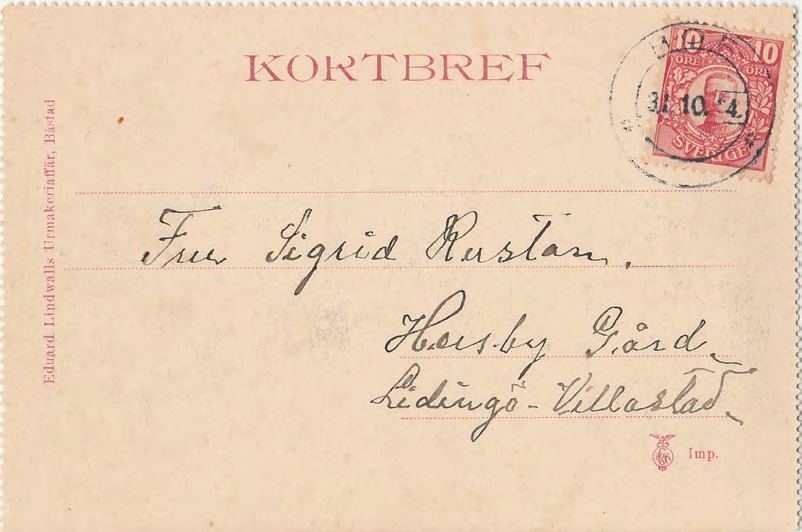 KORTBREF
10 10
ÖRE ÖRE
SVERIGE
31.10.14.
Eduard Lindwalls Urmakeriaffär, Båstad
Fru Sigrid Rustan.
Hersby Gård
Lidingö-Villastad
Imp.